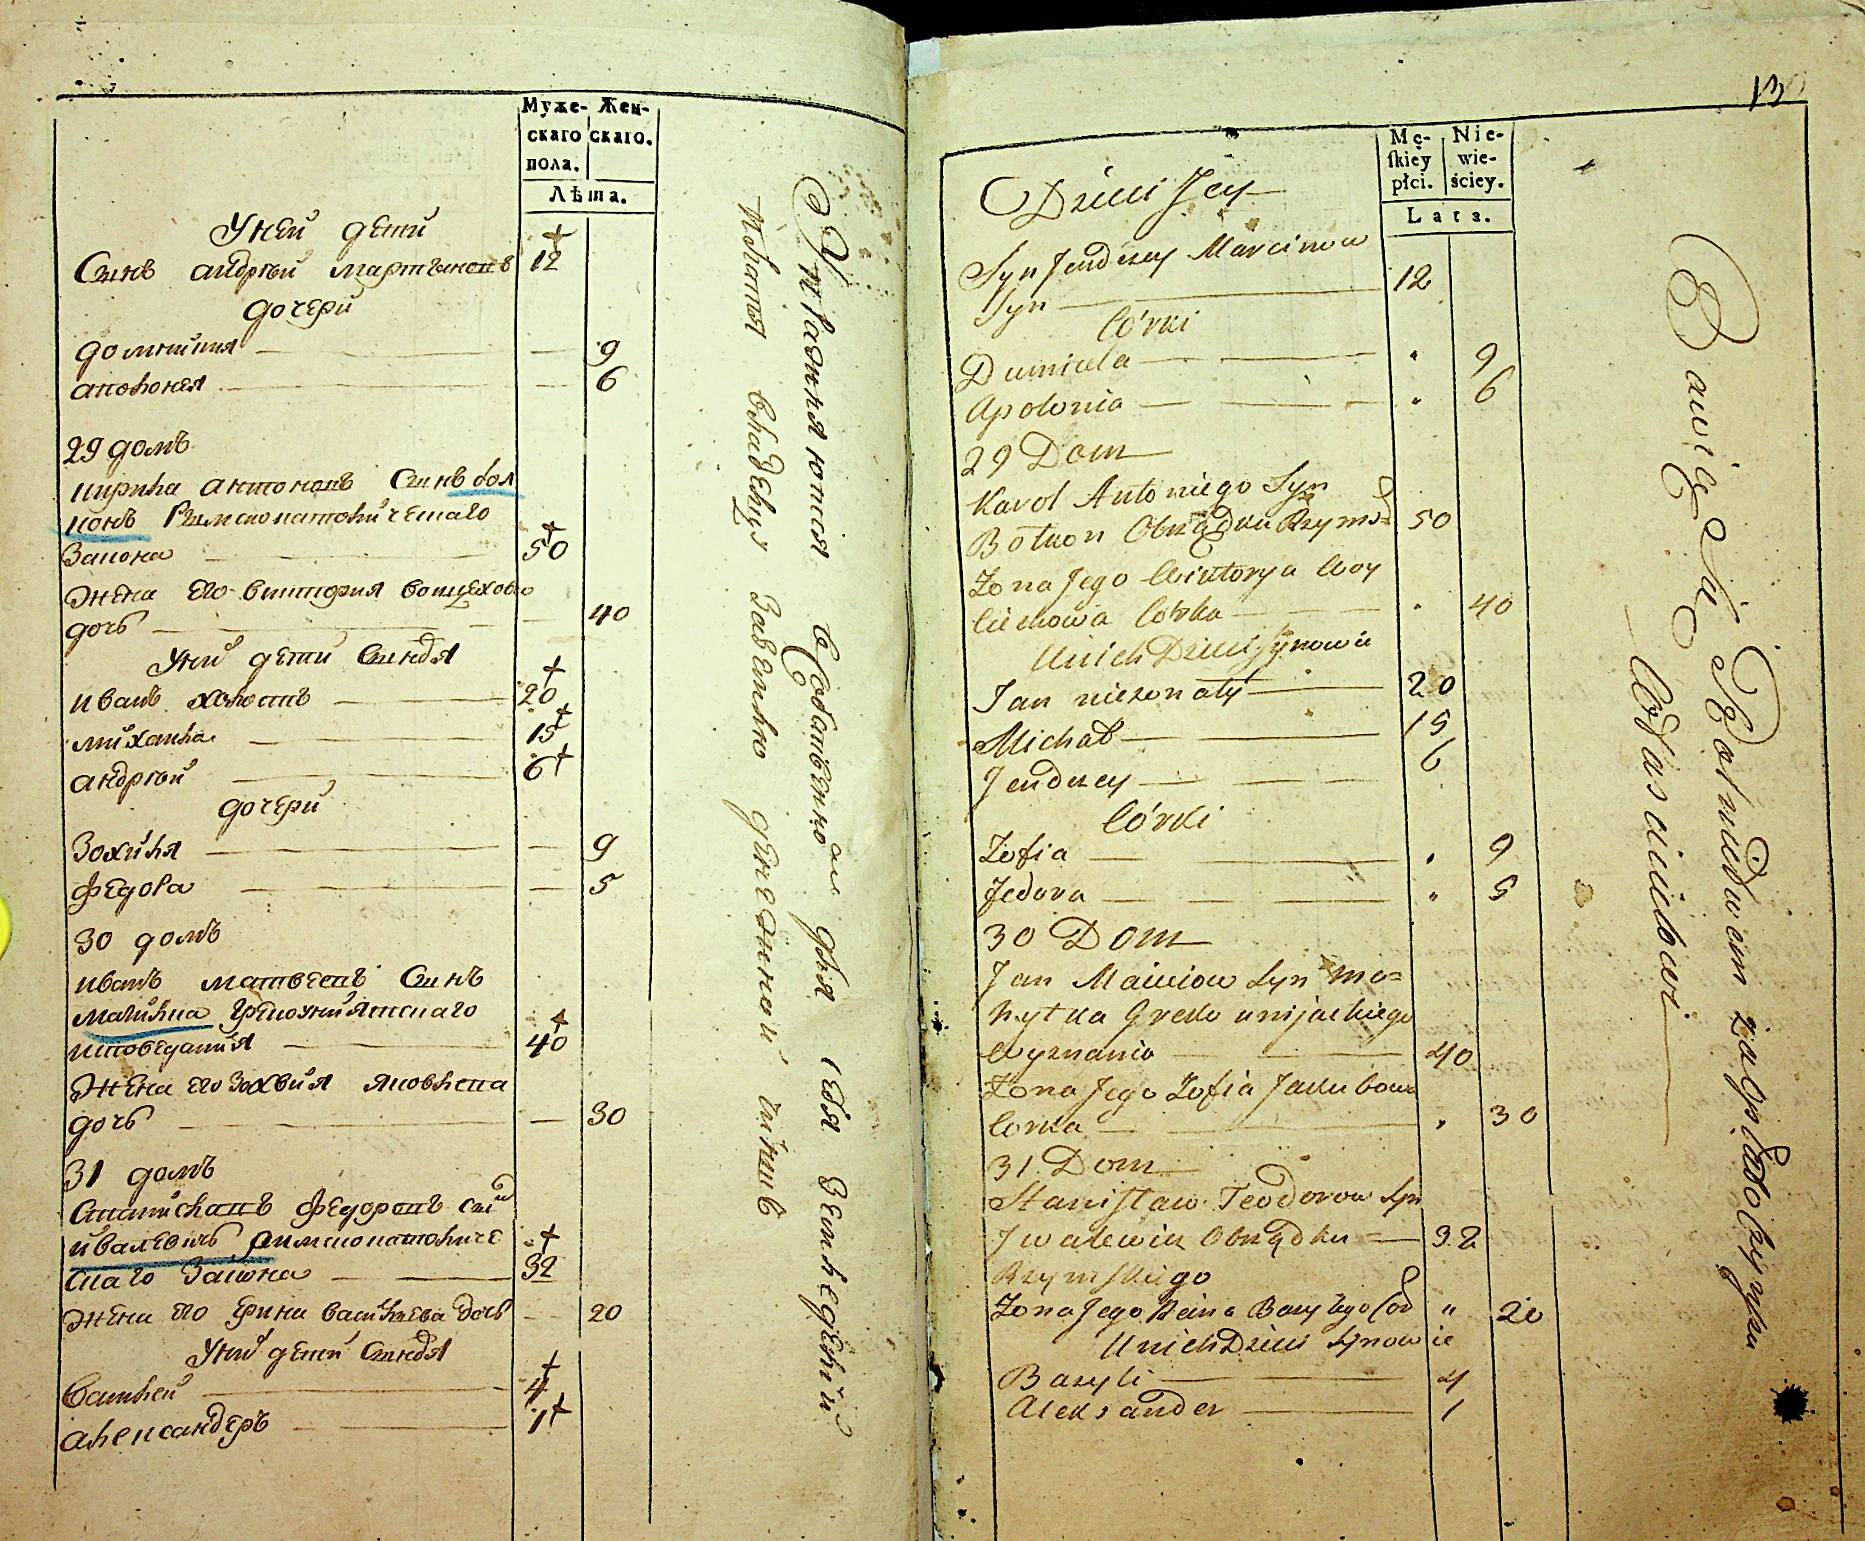 Муже-
скаго
пола.
Жен-
скаго.
Лѣта.
У ней дети
Синъ андрѣй мартиновъ 12
дочери
доминиля 9
аполонея 6
29 домъ
кирила антоновъ Синъ бол
конъ Римскокатоличешкаго
Закона 50
Жена его виктория воицехова
дочъ 40
У них дети Синовя
иванъ холостъ 20
михаила 15
андрѣй 6
дочери
Зохиля 9
федора 5
30 домъ
иванъ матвеевъ Синъ
Малишка Грекоуниятскаго
исповедания 40
Жена его Зохвия яковлева
дочъ 30
31 домъ
Станиславъ федоровъ син
ивалевичъ Римскокатоличе
скаго Закона 32
Жена его Ерина василиева дочъ 20
У них дети Синовя
василей 4
александеръ 1
13
Mę-
skiey
płci.
Nie-
wie-
ściey.
Lata.
Dzieci Jey
Syn Jendrzey Marcinow
Syn 12
Córki
Dumicela 9
Apolonia 6
29 Dom
Karol Antoniego Syn
Bolkon Obrządku Rzyms 50
Żona Jego Wiktorya Woy
ciechowa Córka 40
U nich Dzieci Synowie
Jan nieżonaty 20
Michał 15
Jendrzey 6
Córki
Zofia 9
Fedora 5
30 Dom
Jan Maciiow Syn Ma=
łytka Greko unijackiego
Wyznania 40
Żona Jego Zofia Jakubowa
Corka 30
31. Dom
Stanisław Teodorow Syn
Jwalewicz Obrządku 32
Rzymskiego
Żona Jego Reina Bazylego Cor 20
U nich Dzieci Synowie
Bazyli 4
Alexander 1